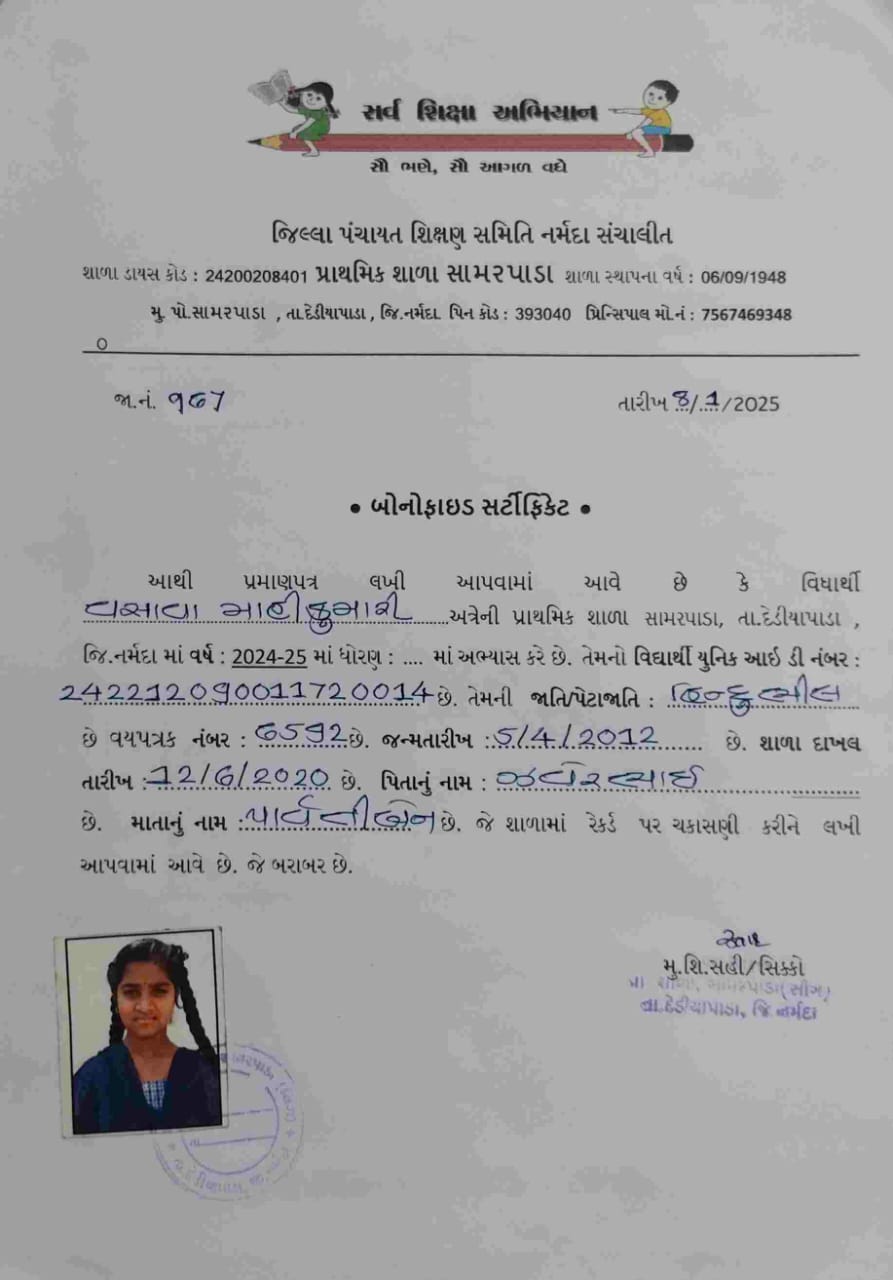 સર્વ શિક્ષા અભિયાન
સૌ ભણે, સૌ આગળ વધે
જિલ્લા પંચાયત શિક્ષણ સમિતિ નર્મદા સંચાલીત
શાળા ડાયસ કોડ : 24200208401 પ્રાથમિક શાળા સામરપાડા શાળા સ્થાપના વર્ષ : 06/09/1948
મુ. પો.સામરપાડા , તા.દેડીયાપાડા , જિ.નર્મદા. પિન કોડ : 393040 પ્રિન્સિપાલ મો.નં : 7567469348
જા.નં. ૧૯7 તારીખ 8/1/2025
• બોનોફાઇડ સર્ટીફિકેટ •
આથી પ્રમાણપત્ર લખી આપવામાં આવે છે કે વિધાર્થી
વસાવા માહીકુમારી અત્રેની પ્રાથમિક શાળા સામરપાડા, તા.દેડીયાપાડા ,
જિ.નર્મદા માં વર્ષ : 2024-25 માં ધોરણ : .... માં અભ્યાસ કરે છે. તેમનો વિદ્યાર્થી યુનિક આઇ ડી નંબર :
242212090011720014 છે. તેમની જાતિ/પેટાજાતિ : હિન્દુ ભીલ
છે વયપત્રક નંબર : 6592 છે. જન્મતારીખ : 5/4/2012 છે. શાળા દાખલ
તારીખ : 12/6/2020 છે. પિતાનું નામ : ઝવેરભાઈ
છે. માતાનું નામ : પાર્વતીબેન છે. જે શાળામાં રેકર્ડ પર ચકાસણી કરીને લખી
આપવામાં આવે છે. જે બરાબર છે.
મુ.શિ.સહી/સિક્કો
પ્રા શાળા, સામરપાડા(સીગ)
તા.દેડીયાપાડા, જિ.નર્મદા